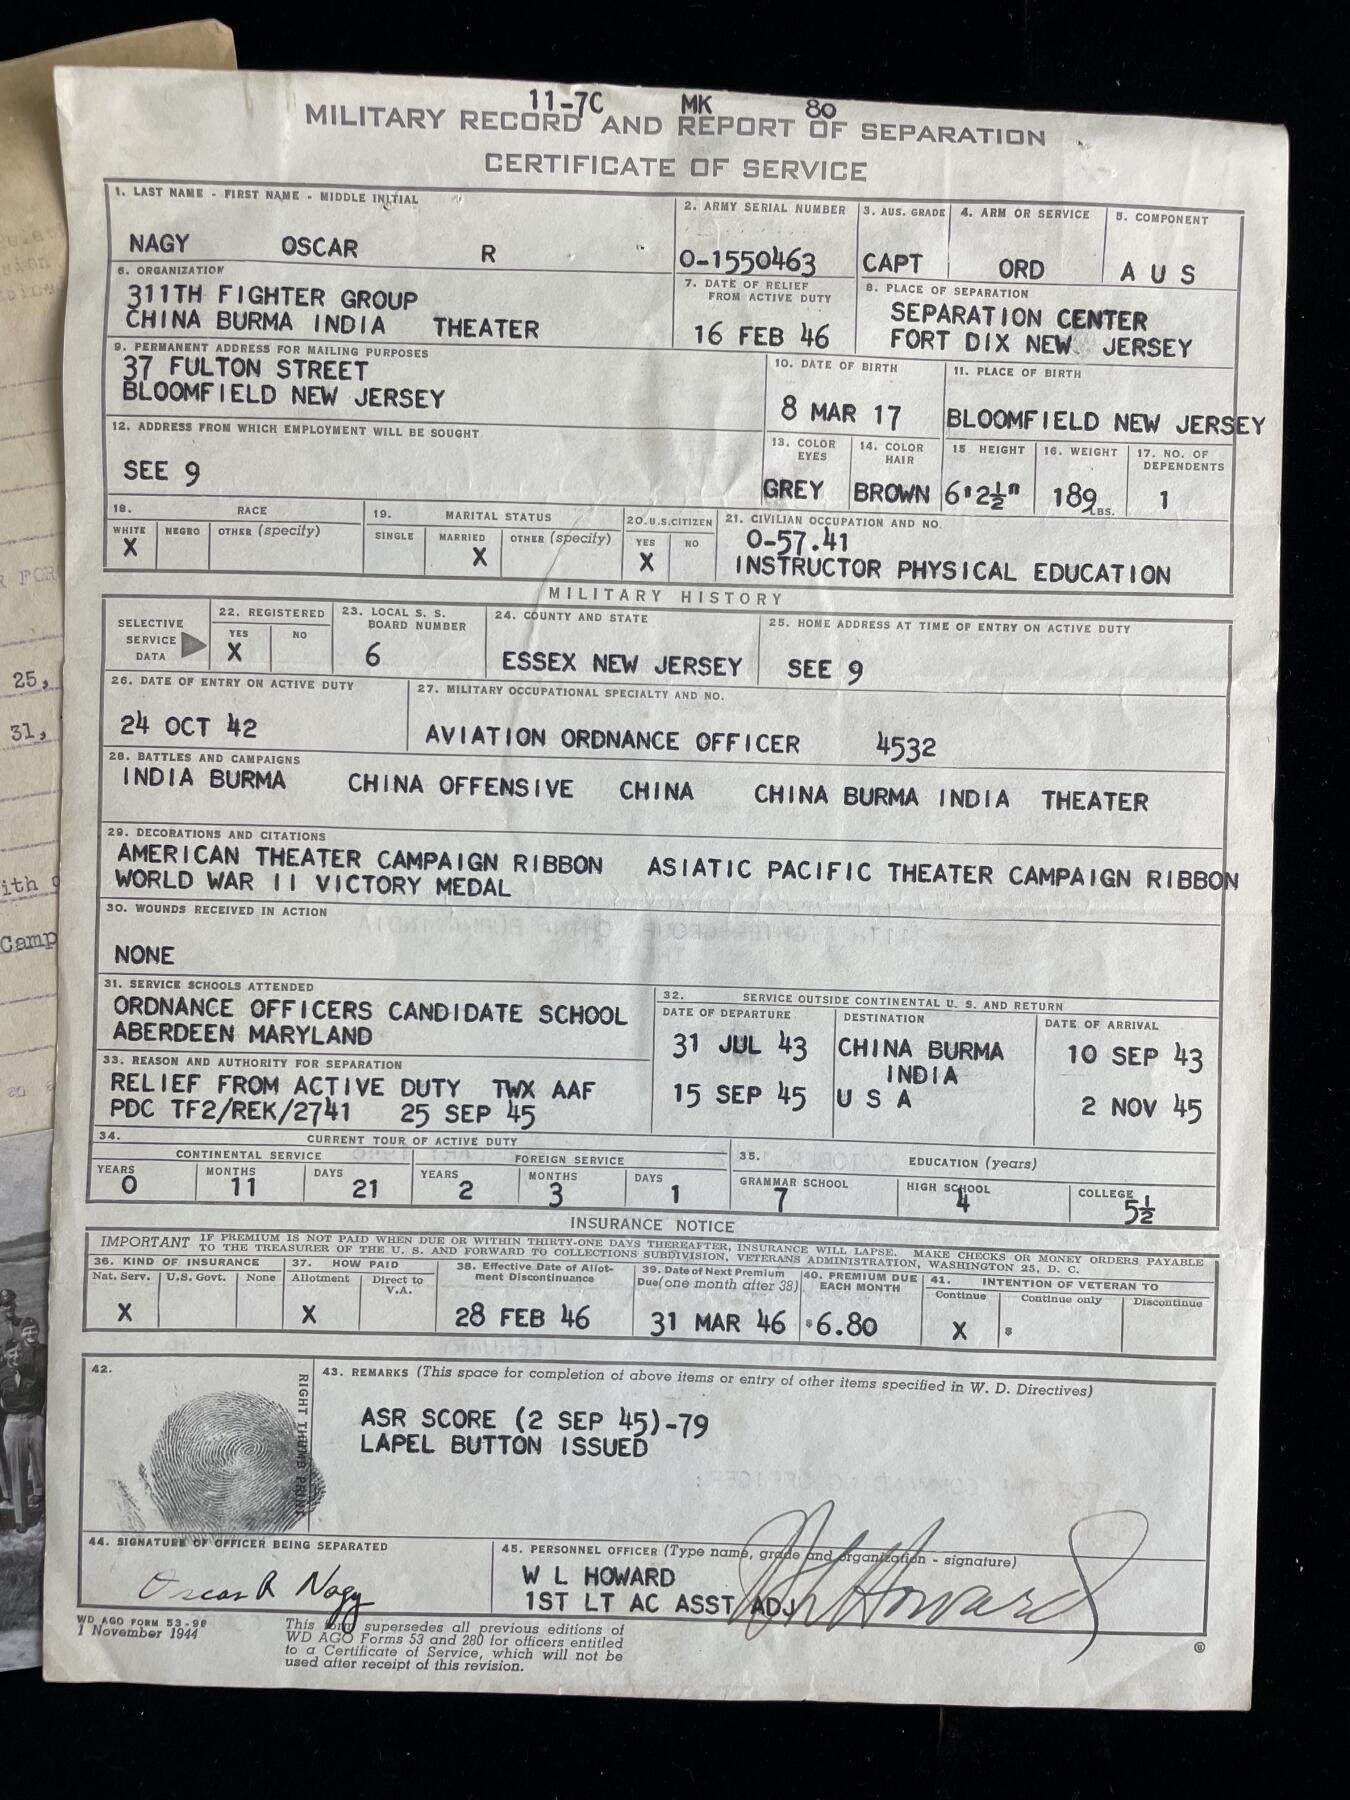 11-7C MK 80
MILITARY RECORD AND REPORT OF SEPARATION
CERTIFICATE OF SERVICE
1. LAST NAME - FIRST NAME - MIDDLE INITIAL
NAGY OSCAR R
2. ARMY SERIAL NUMBER
O-1550463
3. AUS. GRADE
CAPT
4. ARM OR SERVICE
ORD
5. COMPONENT
A U S
6. ORGANIZATION
311TH FIGHTER GROUP
CHINA BURMA INDIA THEATER
7. DATE OF RELIEF
FROM ACTIVE DUTY
16 FEB 46
8. PLACE OF SEPARATION
SEPARATION CENTER
FORT DIX NEW JERSEY
9. PERMANENT ADDRESS FOR MAILING PURPOSES
37 FULTON STREET
BLOOMFIELD NEW JERSEY
10. DATE OF BIRTH
8 MAR 17
11. PLACE OF BIRTH
BLOOMFIELD NEW JERSEY
12. ADDRESS FROM WHICH EMPLOYMENT WILL BE SOUGHT
SEE 9
13. COLOR
EYES
GREY
14. COLOR
HAIR
BROWN
15 HEIGHT
6'2½"
16. WEIGHT
189 LBS.
17. NO. OF
DEPENDENTS
1
18. RACE
WHITE NEGRO OTHER (specify)
X
19. MARITAL STATUS
SINGLE MARRIED OTHER (specify)
X
20.U.S.CITIZEN
YES NO
X
21. CIVILIAN OCCUPATION AND NO.
0-57.41
INSTRUCTOR PHYSICAL EDUCATION
MILITARY HISTORY
SELECTIVE
SERVICE
DATA
22. REGISTERED
YES NO
X
23. LOCAL S. S.
BOARD NUMBER
6
24. COUNTY AND STATE
ESSEX NEW JERSEY
25. HOME ADDRESS AT TIME OF ENTRY ON ACTIVE DUTY
SEE 9
26. DATE OF ENTRY ON ACTIVE DUTY
24 OCT 42
27. MILITARY OCCUPATIONAL SPECIALTY AND NO.
AVIATION ORDNANCE OFFICER 4532
28. BATTLES AND CAMPAIGNS
INDIA BURMA CHINA OFFENSIVE CHINA CHINA BURMA INDIA THEATER
29. DECORATIONS AND CITATIONS
AMERICAN THEATER CAMPAIGN RIBBON ASIATIC PACIFIC THEATER CAMPAIGN RIBBON
WORLD WAR II VICTORY MEDAL
30. WOUNDS RECEIVED IN ACTION
NONE
31. SERVICE SCHOOLS ATTENDED
ORDNANCE OFFICERS CANDIDATE SCHOOL
ABERDEEN MARYLAND
32. SERVICE OUTSIDE CONTINENTAL U. S. AND RETURN
DATE OF DEPARTURE DESTINATION DATE OF ARRIVAL
31 JUL 43 CHINA BURMA 10 SEP 43
INDIA
15 SEP 45 U S A 2 NOV 45
33. REASON AND AUTHORITY FOR SEPARATION
RELIEF FROM ACTIVE DUTY TWX AAF
PDC TF2/REK/2741 25 SEP 45
34. CURRENT TOUR OF ACTIVE DUTY
CONTINENTAL SERVICE FOREIGN SERVICE
YEARS MONTHS DAYS YEARS MONTHS DAYS
0 11 21 2 3 1
35. EDUCATION (years)
GRAMMAR SCHOOL HIGH SCHOOL COLLEGE
7 4 5½
INSURANCE NOTICE
IMPORTANT IF PREMIUM IS NOT PAID WHEN DUE OR WITHIN THIRTY-ONE DAYS THEREAFTER, INSURANCE WILL LAPSE. MAKE CHECKS OR MONEY ORDERS PAYABLE
TO THE TREASURER OF THE U. S. AND FORWARD TO COLLECTIONS SUBDIVISION, VETERANS ADMINISTRATION, WASHINGTON 25, D. C.
36. KIND OF INSURANCE
Nat. Serv. U.S. Govt. None
X
37. HOW PAID
Allotment Direct to
V.A.
X
38. Effective Date of Allot-
ment Discontinuance
28 FEB 46
39. Date of Next Premium
Due (one month after 38)
31 MAR 46
40. PREMIUM DUE
EACH MONTH
$6.80
41. INTENTION OF VETERAN TO
Continue Continue only Discontinue
X $
42.
RIGHT THUMB PRINT
43. REMARKS (This space for completion of above items or entry of other items specified in W. D. Directives)
ASR SCORE (2 SEP 45)-79
LAPEL BUTTON ISSUED
44. SIGNATURE OF OFFICER BEING SEPARATED
Oscar R Nagy
45. PERSONNEL OFFICER (Type name, grade and organization - signature)
W L HOWARD
1ST LT AC ASST ADJ
W L Howard
WD AGO FORM 53-98
1 November 1944
This form supersedes all previous editions of
WD AGO Forms 53 and 280 for officers entitled
to a Certificate of Service, which will not be
used after receipt of this revision.
25,
31,
ith
Camp